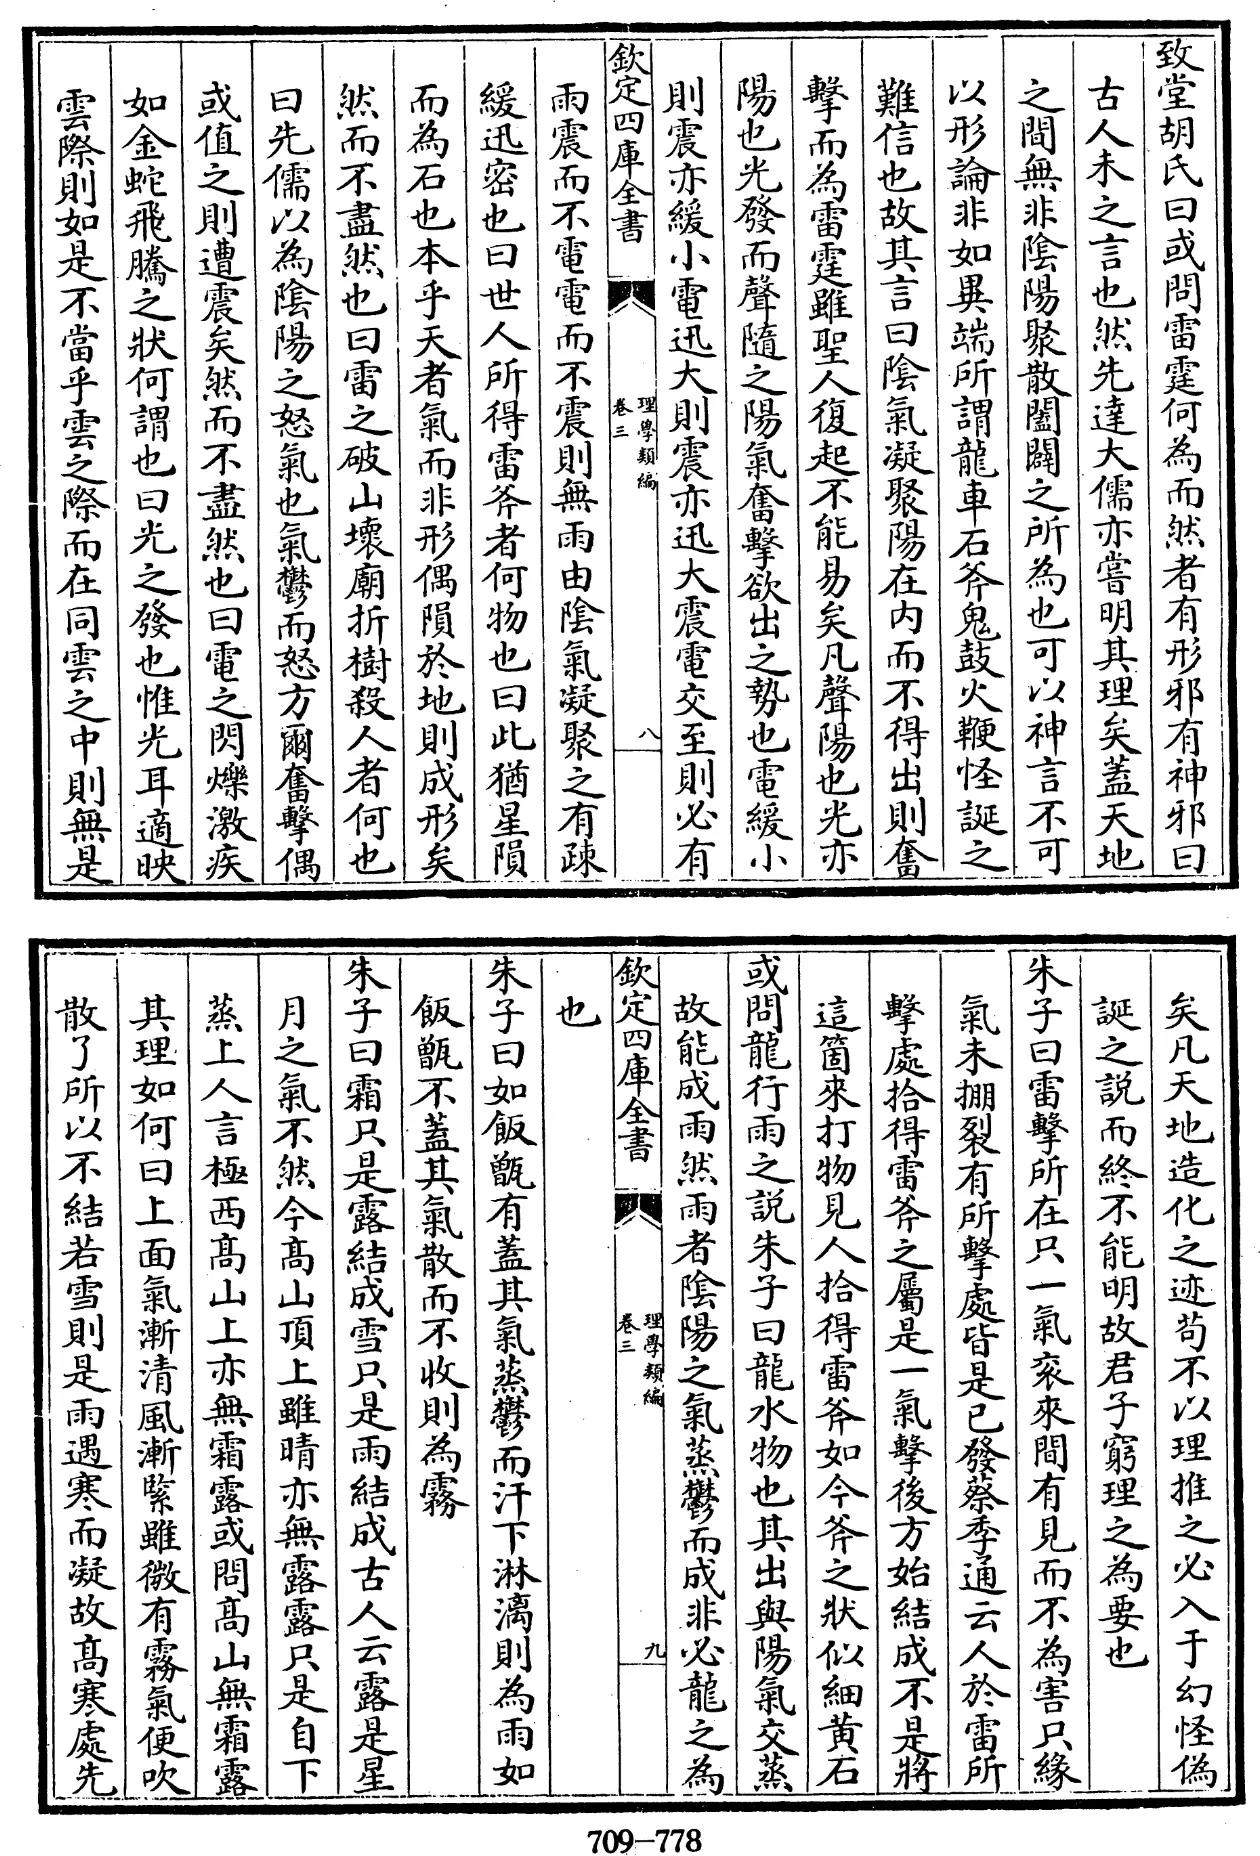 致堂胡氏曰或問雷霆何為而然者有形邪有神邪曰
古人未之言也然先達大儒亦嘗明其理矣蓋天地
之間無非陰陽聚散闔闢之所為也可以神言不可
以形論非如異端所謂龍車石斧鬼鼓火鞭怪誕之
難信也故其言曰陰氣凝聚陽在内而不得出則奮
擊而為雷霆雖聖人復起不能易矣凡聲陽也光亦
陽也光發而聲隨之陽氣奮擊欲出之勢也電緩小
則震亦緩小電迅大則震亦迅大震電交至則必有
欽定四庫全書
理學類編
卷三
八
雨震而不電電而不震則無雨由陰氣凝聚之有疎
緩迅密也曰世人所得雷斧者何物也曰此猶星隕
而為石也本乎天者氣而非形偶隕於地則成形矣
然而不盡然也曰雷之破山壞廟折樹殺人者何也
曰先儒以為陰陽之怒氣也氣鬱而怒方爾奮擊偶
或值之則遭震矣然而不盡然也曰電之閃爍激疾
如金蛇飛騰之狀何謂也曰光之發也惟光耳適映
雲際則如是不當乎雲之際而在同雲之中則無是
矣凡天地造化之迹苟不以理推之必入于幻怪偽
誕之説而終不能明故君子窮理之為要也
朱子曰雷擊所在只一氣衮來間有見而不為害只緣
氣未掤裂有所擊處皆是已發蔡季通云人於雷所
擊處拾得雷斧之屬是一氣擊後方始結成不是將
這箇來打物見人拾得雷斧如今斧之狀似細黄石
或問龍行雨之説朱子曰龍水物也其出與陽氣交蒸
故能成雨然雨者陰陽之氣蒸鬱而成非必龍之為
欽定四庫全書
理學類編
卷三
九
也
朱子曰如飯甑有蓋其氣蒸鬱而汗下淋漓則為雨如
飯甑不蓋其氣散而不收則為霧
朱子曰霜只是露結成雪只是雨結成古人云露是星
月之氣不然今髙山頂上雖晴亦無露露只是自下
蒸上人言極西髙山上亦無霜露或問髙山無霜露
其理如何曰上面氣漸清風漸緊雖微有霧氣便吹
散了所以不結若雪則是雨遇寒而凝故髙寒處先
709-778